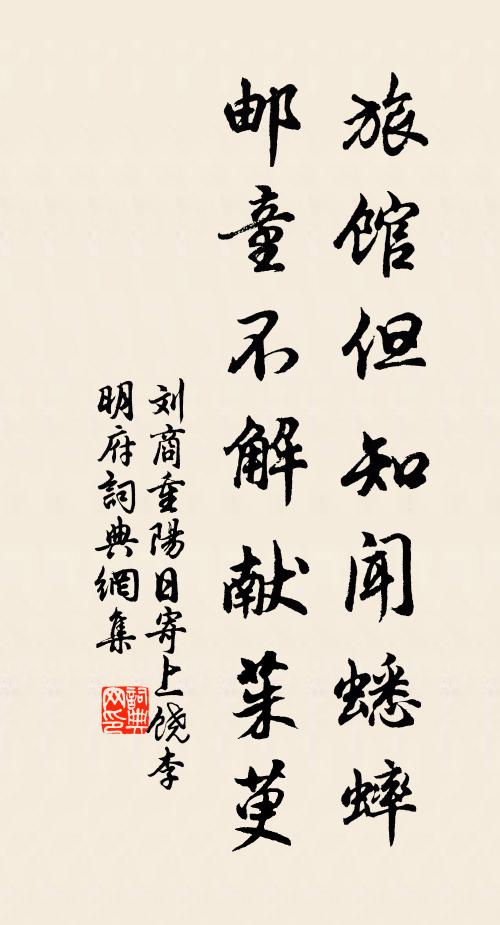 旅馆但知闻蟋蟀
邮童不解献茱萸
刘商重陽日寄上饶李
明府詞典網集
詞典
网印